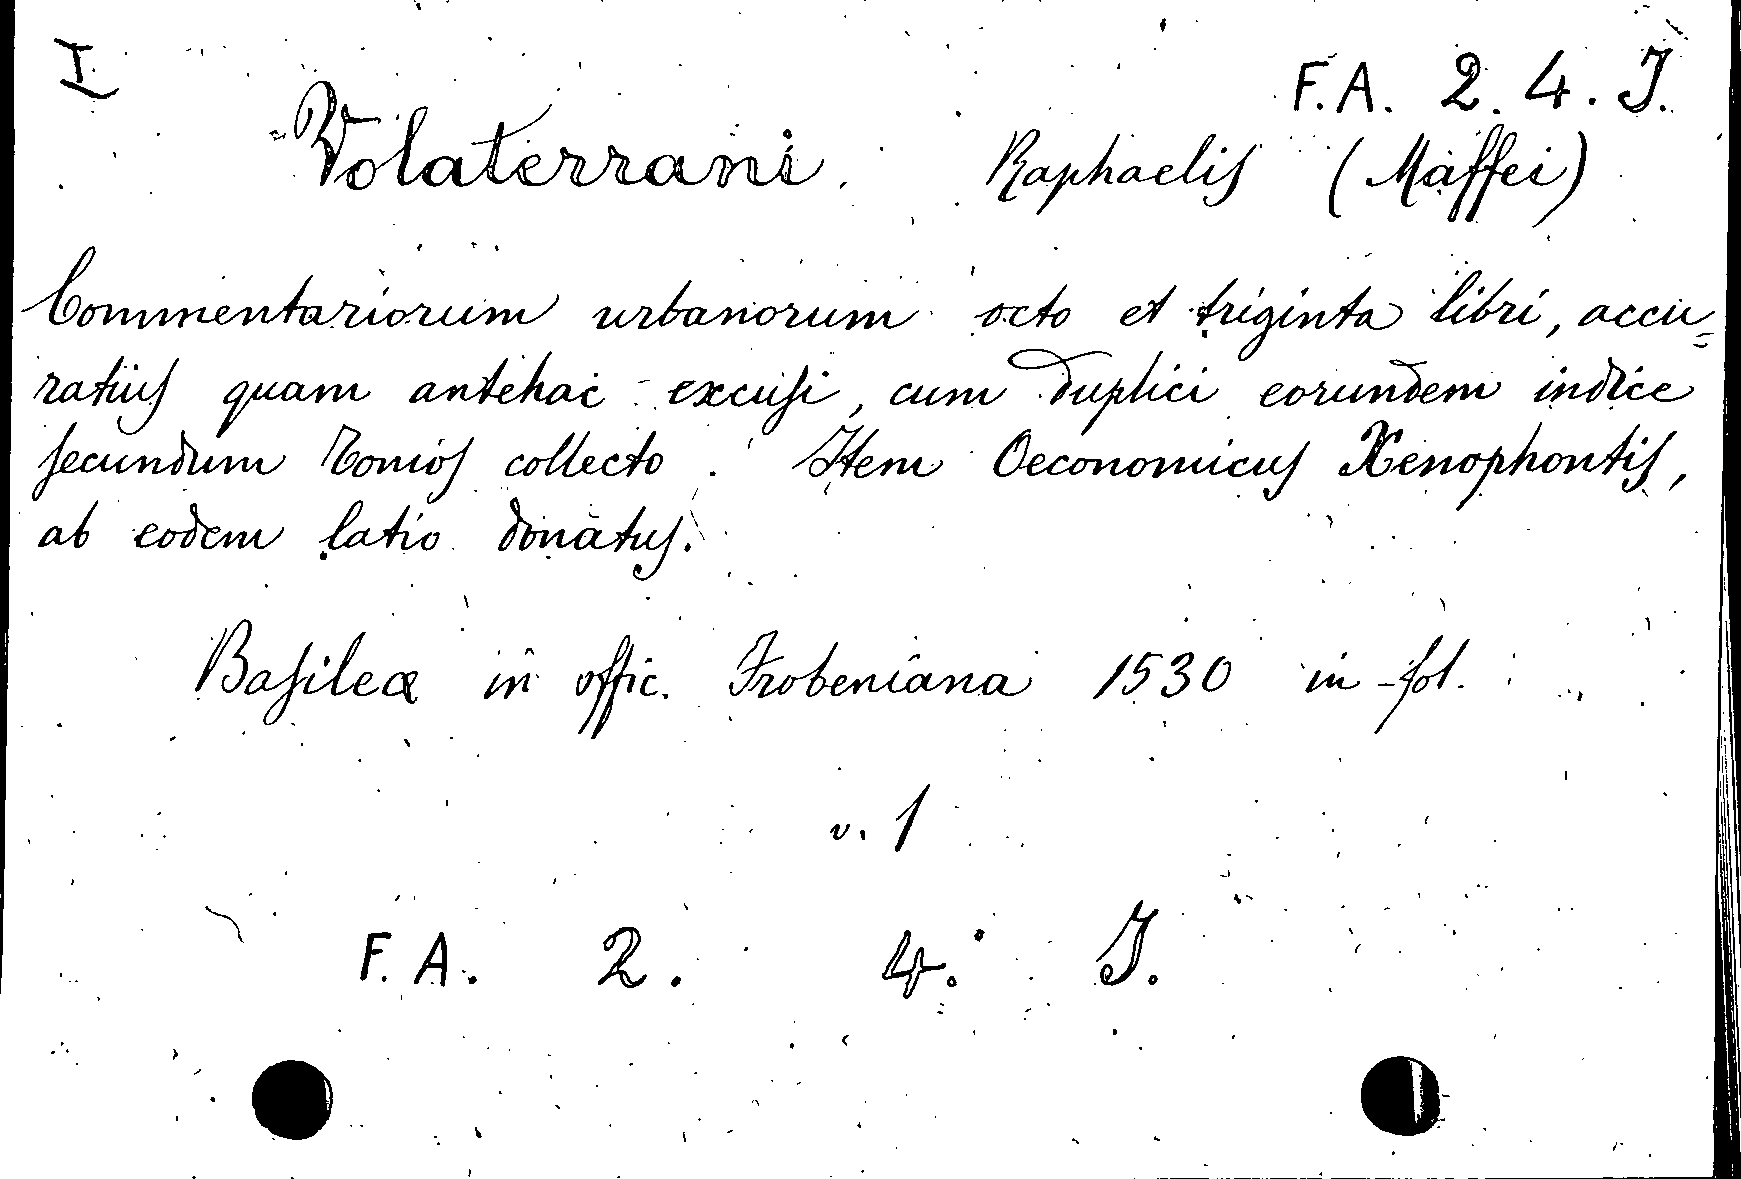 I.
F.A. 2. 4. J.
Volaterrani. Raphaelis (Maffei)
Commentariorum urbanorum octo et triginta libri, accu=
ratius quam antehac excusi, cum duplici eorundem indice
secundum Tomos collecto. Item Oeconomicus Xenophontis,
ab eodem latio donatus.
Basileæ in offic. Frobeniana 1530 in-fol.
v. 1
F. A. 2. 4. J.